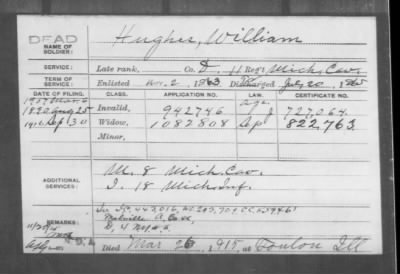 DEAD
Hughes, William
NAME OF
SOLDIER:
SERVICE: Late rank, Co. D, 11 Reg't Mich. Cav.
TERM OF
SERVICE: Enlisted Nov. 2, 1863 Discharged July 20, 1865
DATE OF FILING. CLASS. APPLICATION NO. LAW. CERTIFICATE NO.
1907 Mar. 6 age
1890 Aug 25 Invalid, 942746 727,064.
Sep 30 Widow, 1082808 822,763.
Minor,
ADDITIONAL
SERVICES:
M. 8 Mich Cav.
I. 18 Mich Inf.
REMARKS:
Died Mar 1915 at Toulon Ill